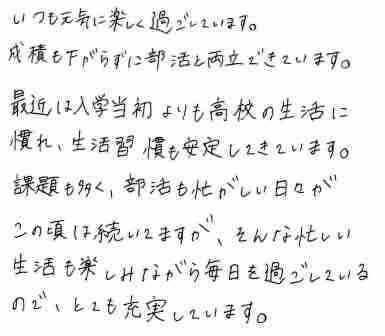 いつも元気に楽しく過ごしています。
成積も下がらずに部活と両立できています。
最近は入学当初よりも高校の生活に
慣れ、生活習慣も安定してきています。
課題も多く、部活も忙がしい日々が
この頃は続いてますが、そんな忙しい
生活も楽しみながら毎日を過ごしている
ので、とても充実しています。